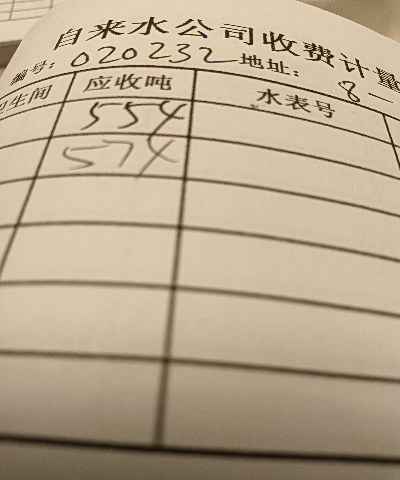 自来水公司收费计量
编号: 020232 地址: 8-
卫生间 应收吨 水表号
554
574